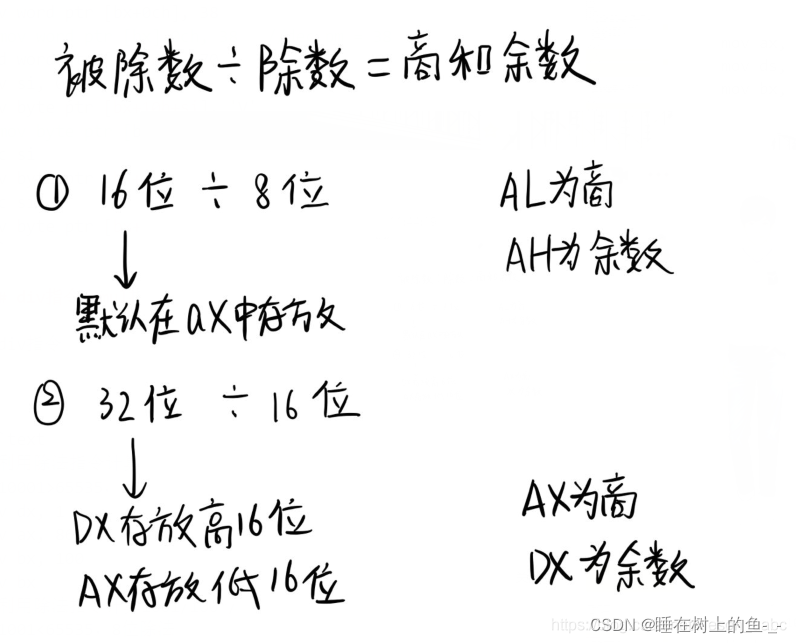 被除数÷除数=商和余数
① 16位 ÷ 8位
AL为商
AH为余数
↓
默认在ax中存放
② 32位 ÷ 16位
↓
DX存放高16位
AX存放低16位
AX为商
DX为余数
CSDN @睡在树上的鱼-_-